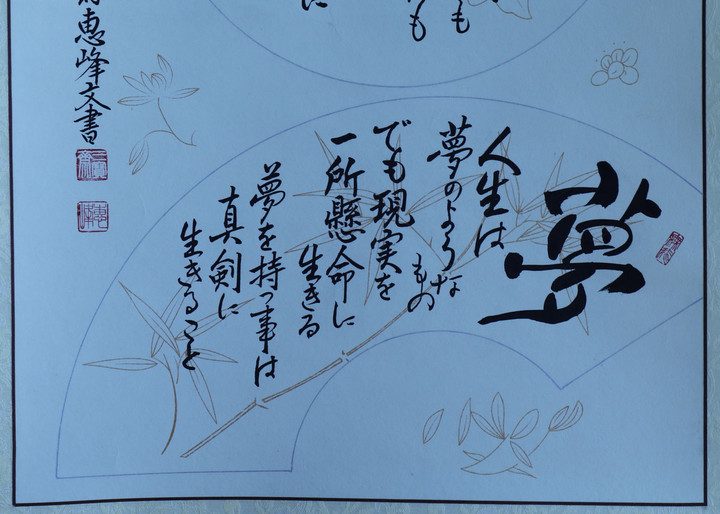 も
も
に
夢
人生は
夢のような
もの
でも現実を
一所懸命に
生きる
夢を持つ事は
真剣に
生きること
恵峰文書